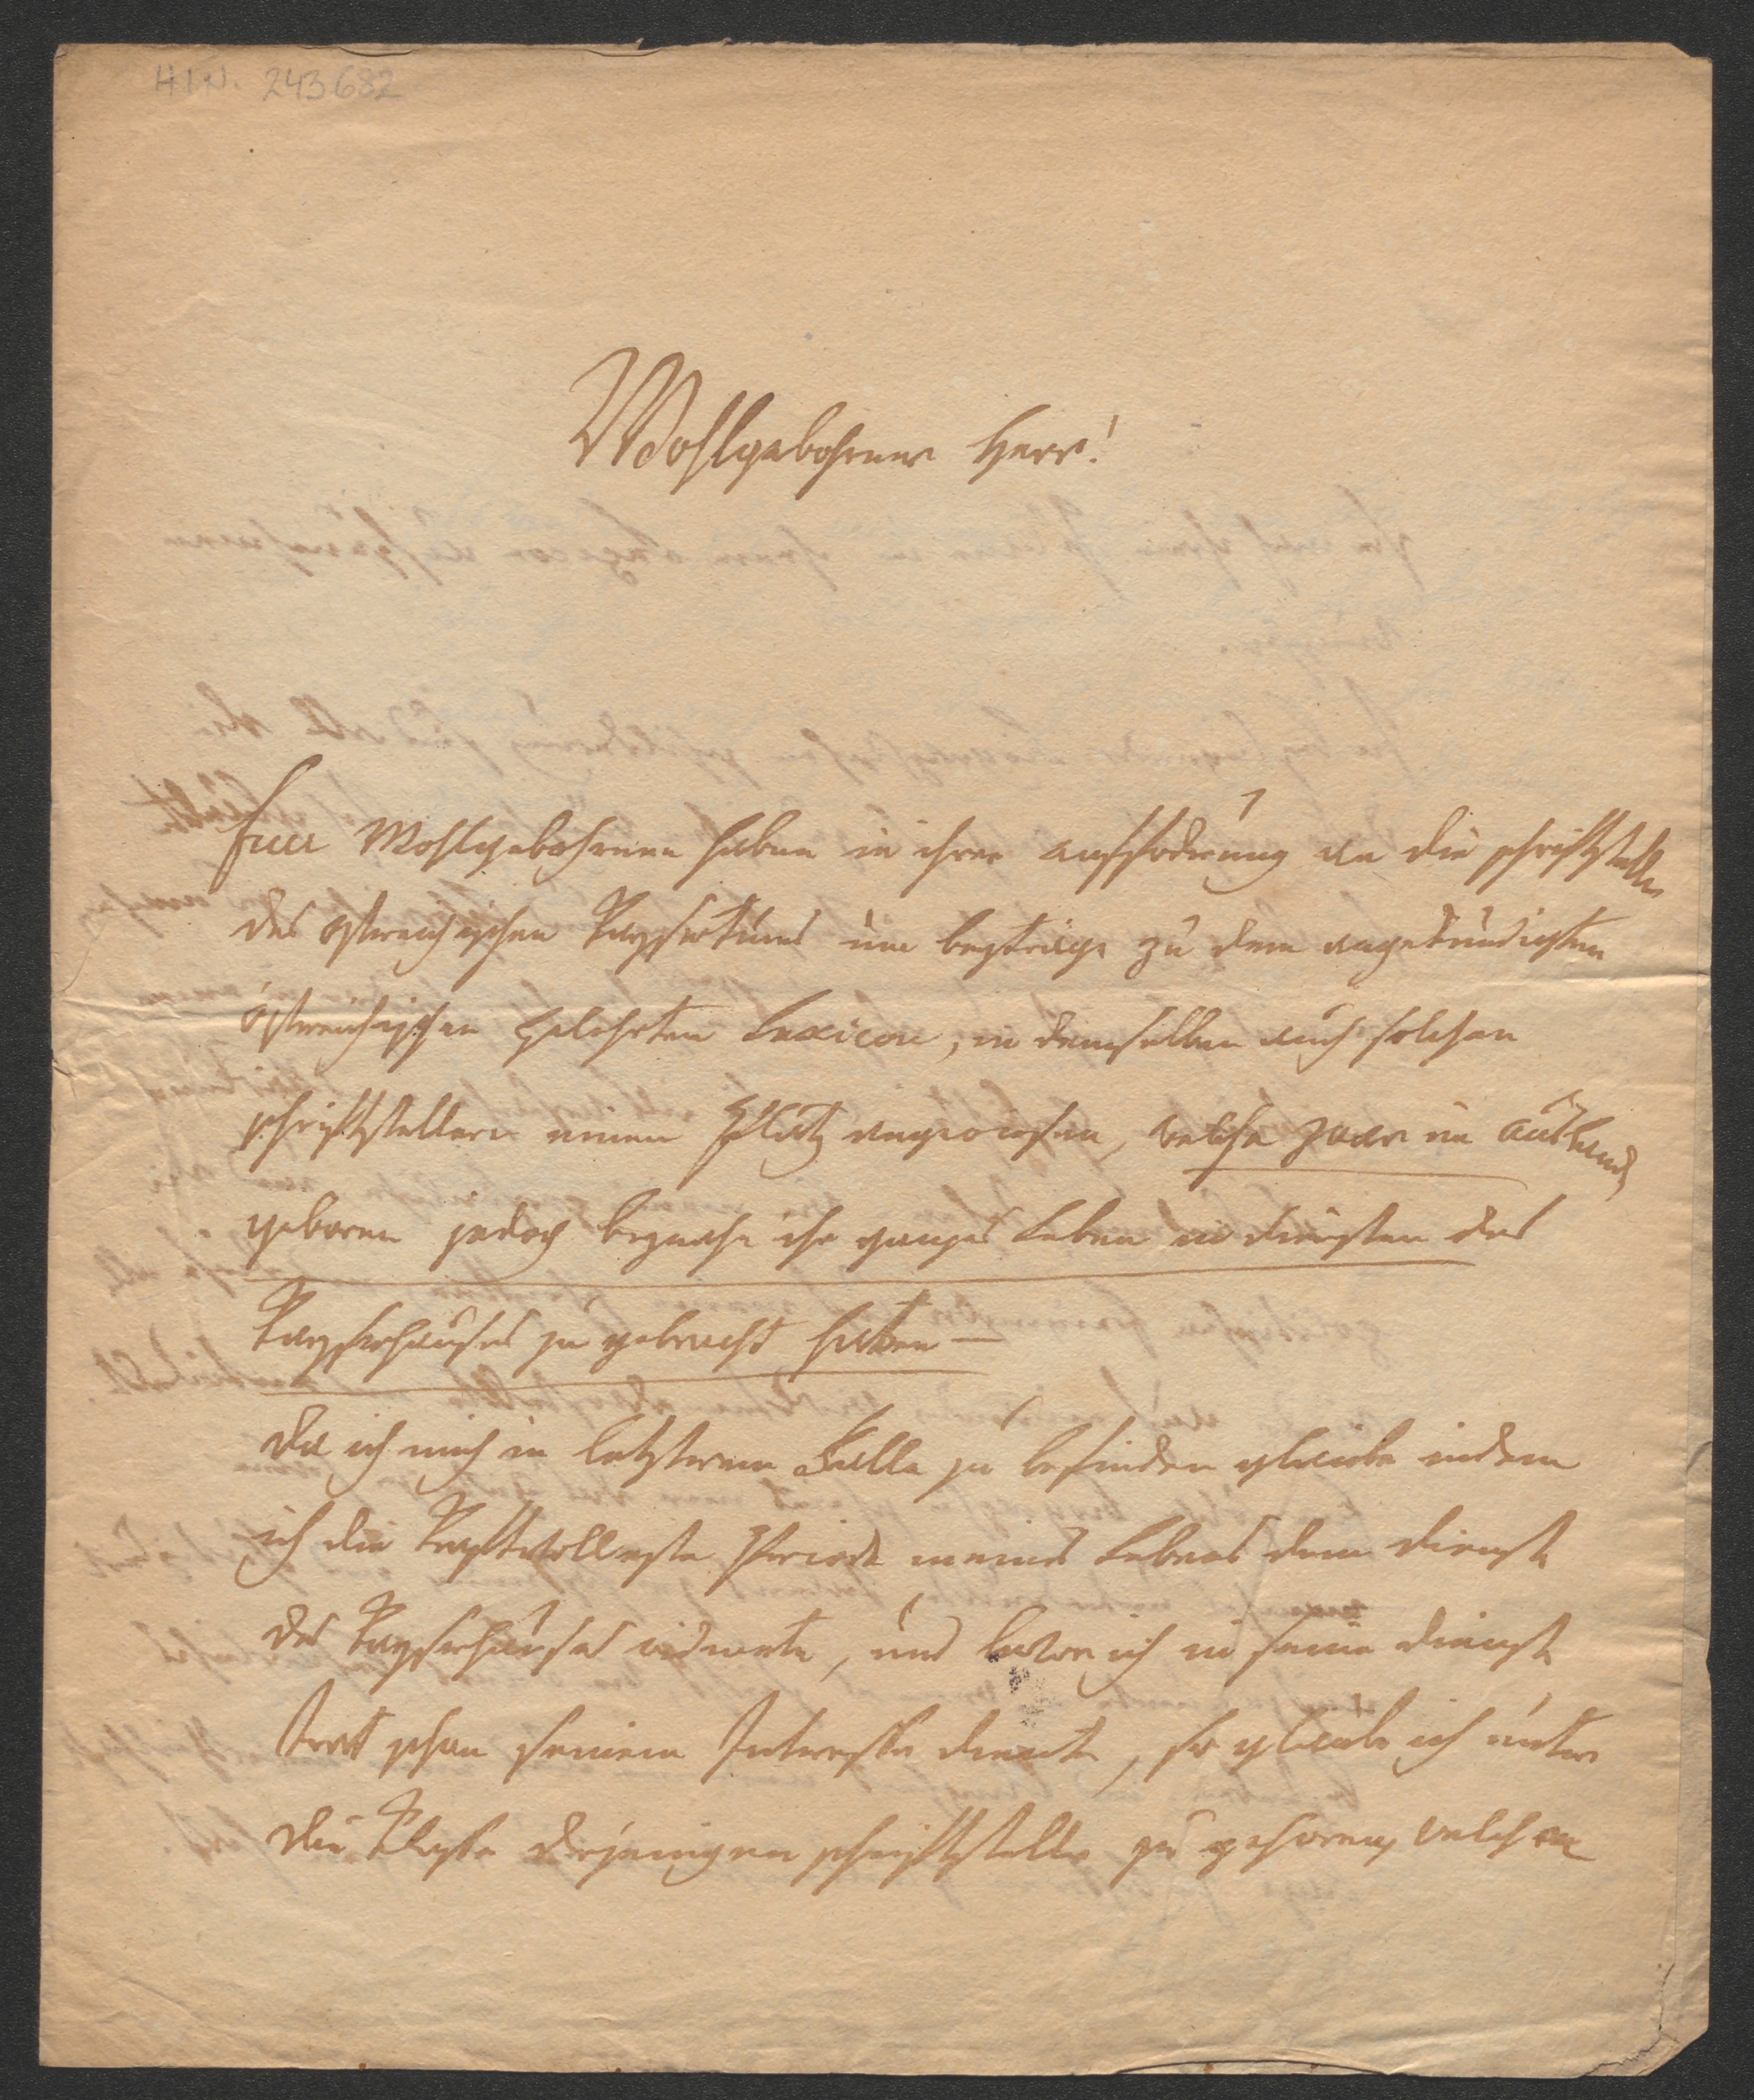 H.I.N. 243682
Wohlgebohrner Herr!
Euer Wohlgebohrnen haben in ihrer aufforderung an die schriftsteller
des östreichischen Kaysertums um beyträge zu dem angekündigten
östreichischen Gelehrten Lexicon, in demselben auch solchen
schriftstellern einen Platz angewiesen, welche zwar im Auslande
geboren jedoch beynahe ihr ganzes Leben in diensten des
Kayserhauses zu gebracht haben —
da ich mich in letzterem Falle zu befinden glaube indem
ich die Kraftvolleste Periode meines Lebens dem dienste
des Kayserhauses widmete, und bevor ich in seine dienste
trat schon seinem Interesse diente, so glaube ich unter
die Klasse derjenigen schriftsteller zu gehören, welchen